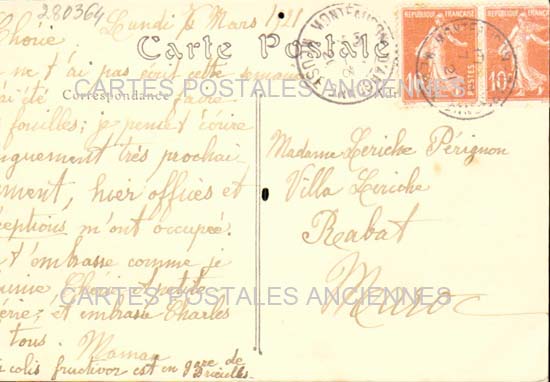 280364
Lundi 7 Mars 1921
Chérie,
Carte Postale
ne t'ai pas écrit cette semaine
ai été faire
Correspondance
fouilles; je pense t'écrire
longuement très prochai
ement, hier offices et
réceptions m'ont occupée.
t'embrasse comme je
aime, Chérie, petite
et embrasse Charles
tous. Maman
colis fructivor est en gare de
Madame Leriche Pérignon
Villa Leriche
Rabat
Maroc
RÉPUBLIQUE FRANÇAISE
10 POSTES
RÉPUBLIQUE FRANÇAISE
POSTES 10
CARTES POSTALES ANCIENNES
CARTES POSTALES ANCIENNES